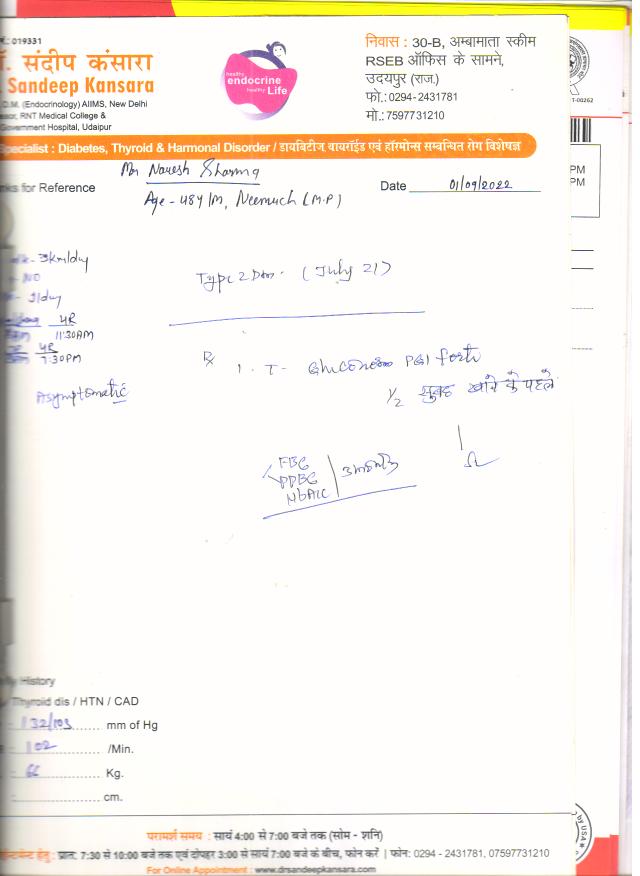 : 019331
निवास : 30-B, अम्बामाता स्कीम
RSEB ऑफिस के सामने,
उदयपुर (राज.)
फो.:0294-2431781
मो.: 7597731210
संदीप कंसारा
Sandeep Kansara
D.M. (Endocrinology) AIIMS, New Delhi
RNT Medical College &
Government Hospital, Udaipur
healthy
endocrine
healthy Life
T-00262
Specialist : Diabetes, Thyroid & Harmonal Disorder / डायबिटीज, थायरॉईड एवं हॉरमोन्स सम्बन्धित रोग विशेषज्ञ
PM
PM
Mr Naresh Sharma
for Reference
Date 01/09/2022
Age - 48y/M, Neemuch (M.P)
3km/day
NO
Type 2 Dm. (July 21)
/day
4R
11:30AM
4R
7:30PM
Rx 1. T-
PG1 forte
Asymptomatic
1/2 सुबह खाने के पहले
FBG
PPBG
HbA1c
3
History
Thyroid dis / HTN / CAD
: 132/103 mm of Hg
: 102 /Min.
: 66 Kg.
: cm.
by USA
परामर्श समय : सायं 4:00 से 7:00 बजे तक (सोम - शनि)
हेतु : प्रात: 7:30 से 10:00 बजे तक एवं दोपहर 3:00 से सायं 7:00 बजे के बीच, फोन करें | फोन: 0294 - 2431781, 07597731210
For Online Appointment : www.drsandeepkansara.com